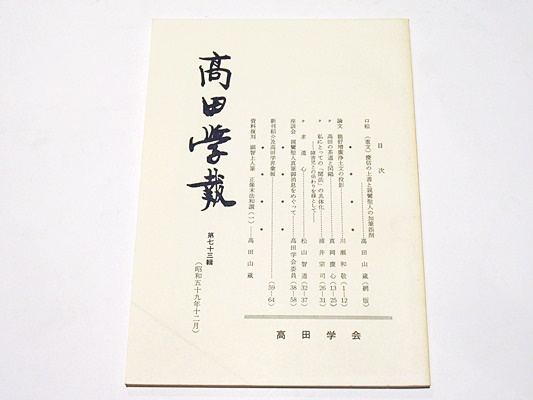 高田学報
第七十三輯
(昭和五十九年十二月)
目次
口絵 (重文) 慶信の上書と親鸞聖人の加筆添削 高田山蔵 (網版)
論文 龍舒増廣浄土文の投影 川瀬和敬 (1―12)
〃 高田の茶道と図鏡 真岡慶心 (13―25)
〃 私にとっての「聞法」の具体化 藤井宗司 (26―31)
―障害児との係わりを縁として―
〃 求道心 松山智道 (32―37)
座談会 親鸞聖人真筆御消息をめぐって 高田学会委員 (38―58)
新刊紹介及高田学界彙報 (59―64)
資料複刻 顕智上人筆 正像末法和讃 (一) 高田山蔵
高田学会